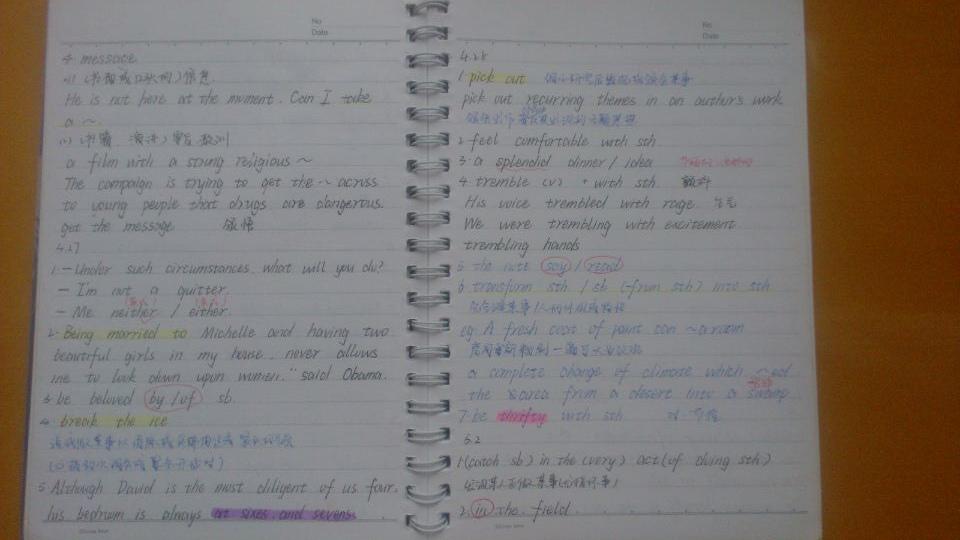 No
Date
4. message
(1) (书面或口头的) 信息
He is not here at the moment. Can I take
a ~.
(2) (书籍、演讲) 要旨 教训
a film with a strong religious ~
The campaign is trying to get the ~ across
to young people that drugs are dangerous.
get the message 领悟
4.27
1. — Under such circumstances, what will you do?
— I'm not a quitter.
(英式) (美式)
— Me neither / either.
2. Being married to Michelle and having two
beautiful girls in my house, never allows
me to look down upon women." said Obama.
3. be beloved by / of sb.
4. break the ice
5. Although David is the most diligent of us four,
his bedroom is always at sixes and sevens.
No
Date
4.28
1. pick out
pick out recurring themes in an author's work
2. feel comfortable with sth
3. a splendid dinner / idea
4. tremble (v) + with sth. 颤抖
His voice trembled with rage. 生气
We were trembling with excitement
trembling hands
5. the note say / read
6. transform sth / sb (from sth) into sth
eg. A fresh coat of paint can ~ a room
房间重新粉刷一遍
a complete change of climate which ~ed
the area from a desert into a swamp
7. be thrifty with sth 对 节俭
5.2
1. (catch sb) in the (very) act (of doing sth)
2. in the field